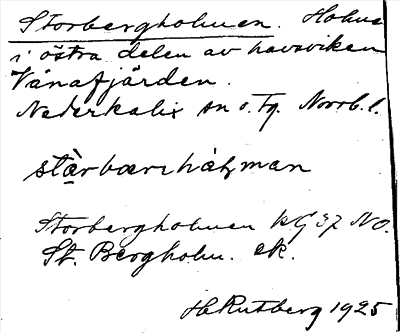 Storbergholmen. Holme
i östra delen av havsviken
Vånafjärden.
Nederkalix sn o. Tg. Norrb. l.
Storbergholmen kG 37 NO.
St. Bergholm. ek.
H. Rutberg 1925